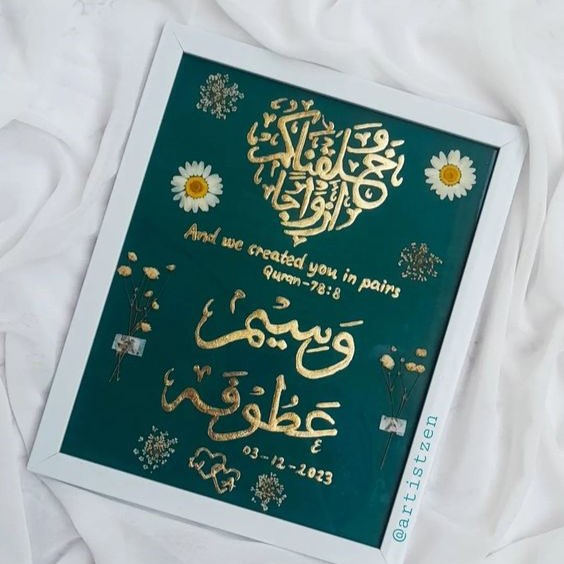 وخلقناكم
ازواجا
And we created you in pairs
Quran-78:8
وَسِيْم
عَطُوْفَہ
03-12-2023
@artistzen